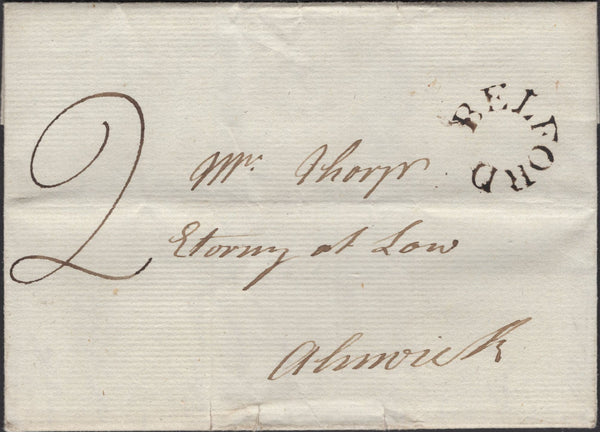 BELFORD
2
Mr. Thorp
Etorny at Law
Alnwick